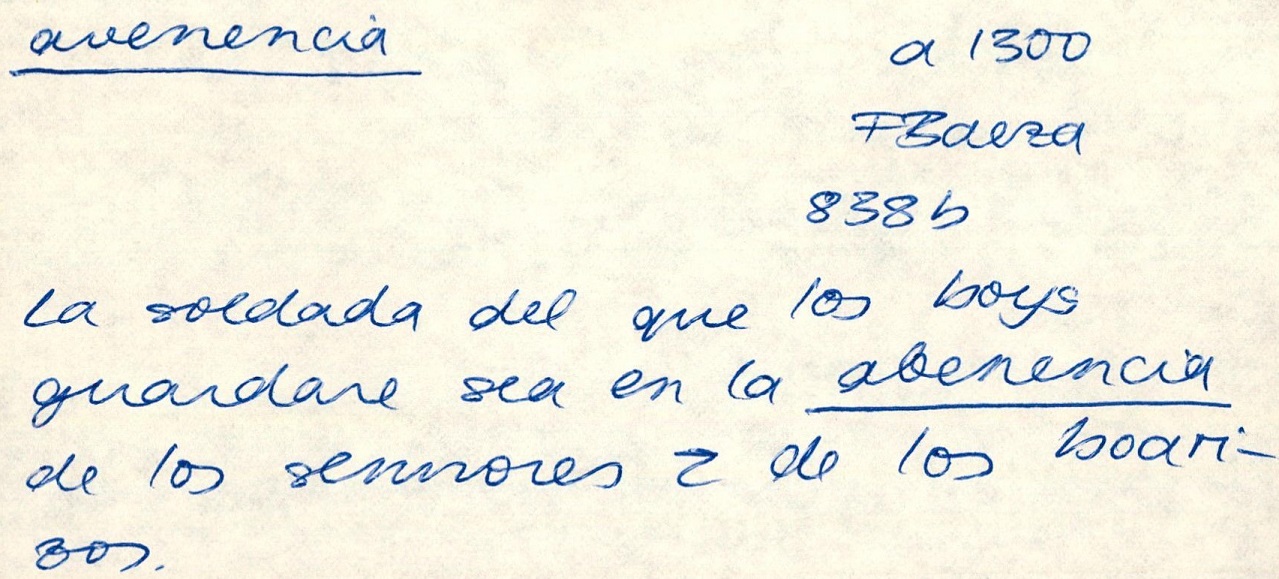 avenencia
a 1300
FBaeza
838b
La soldada del que los boys
guardare sea en la abenencia
de los sennores τ de los boari-
zos.